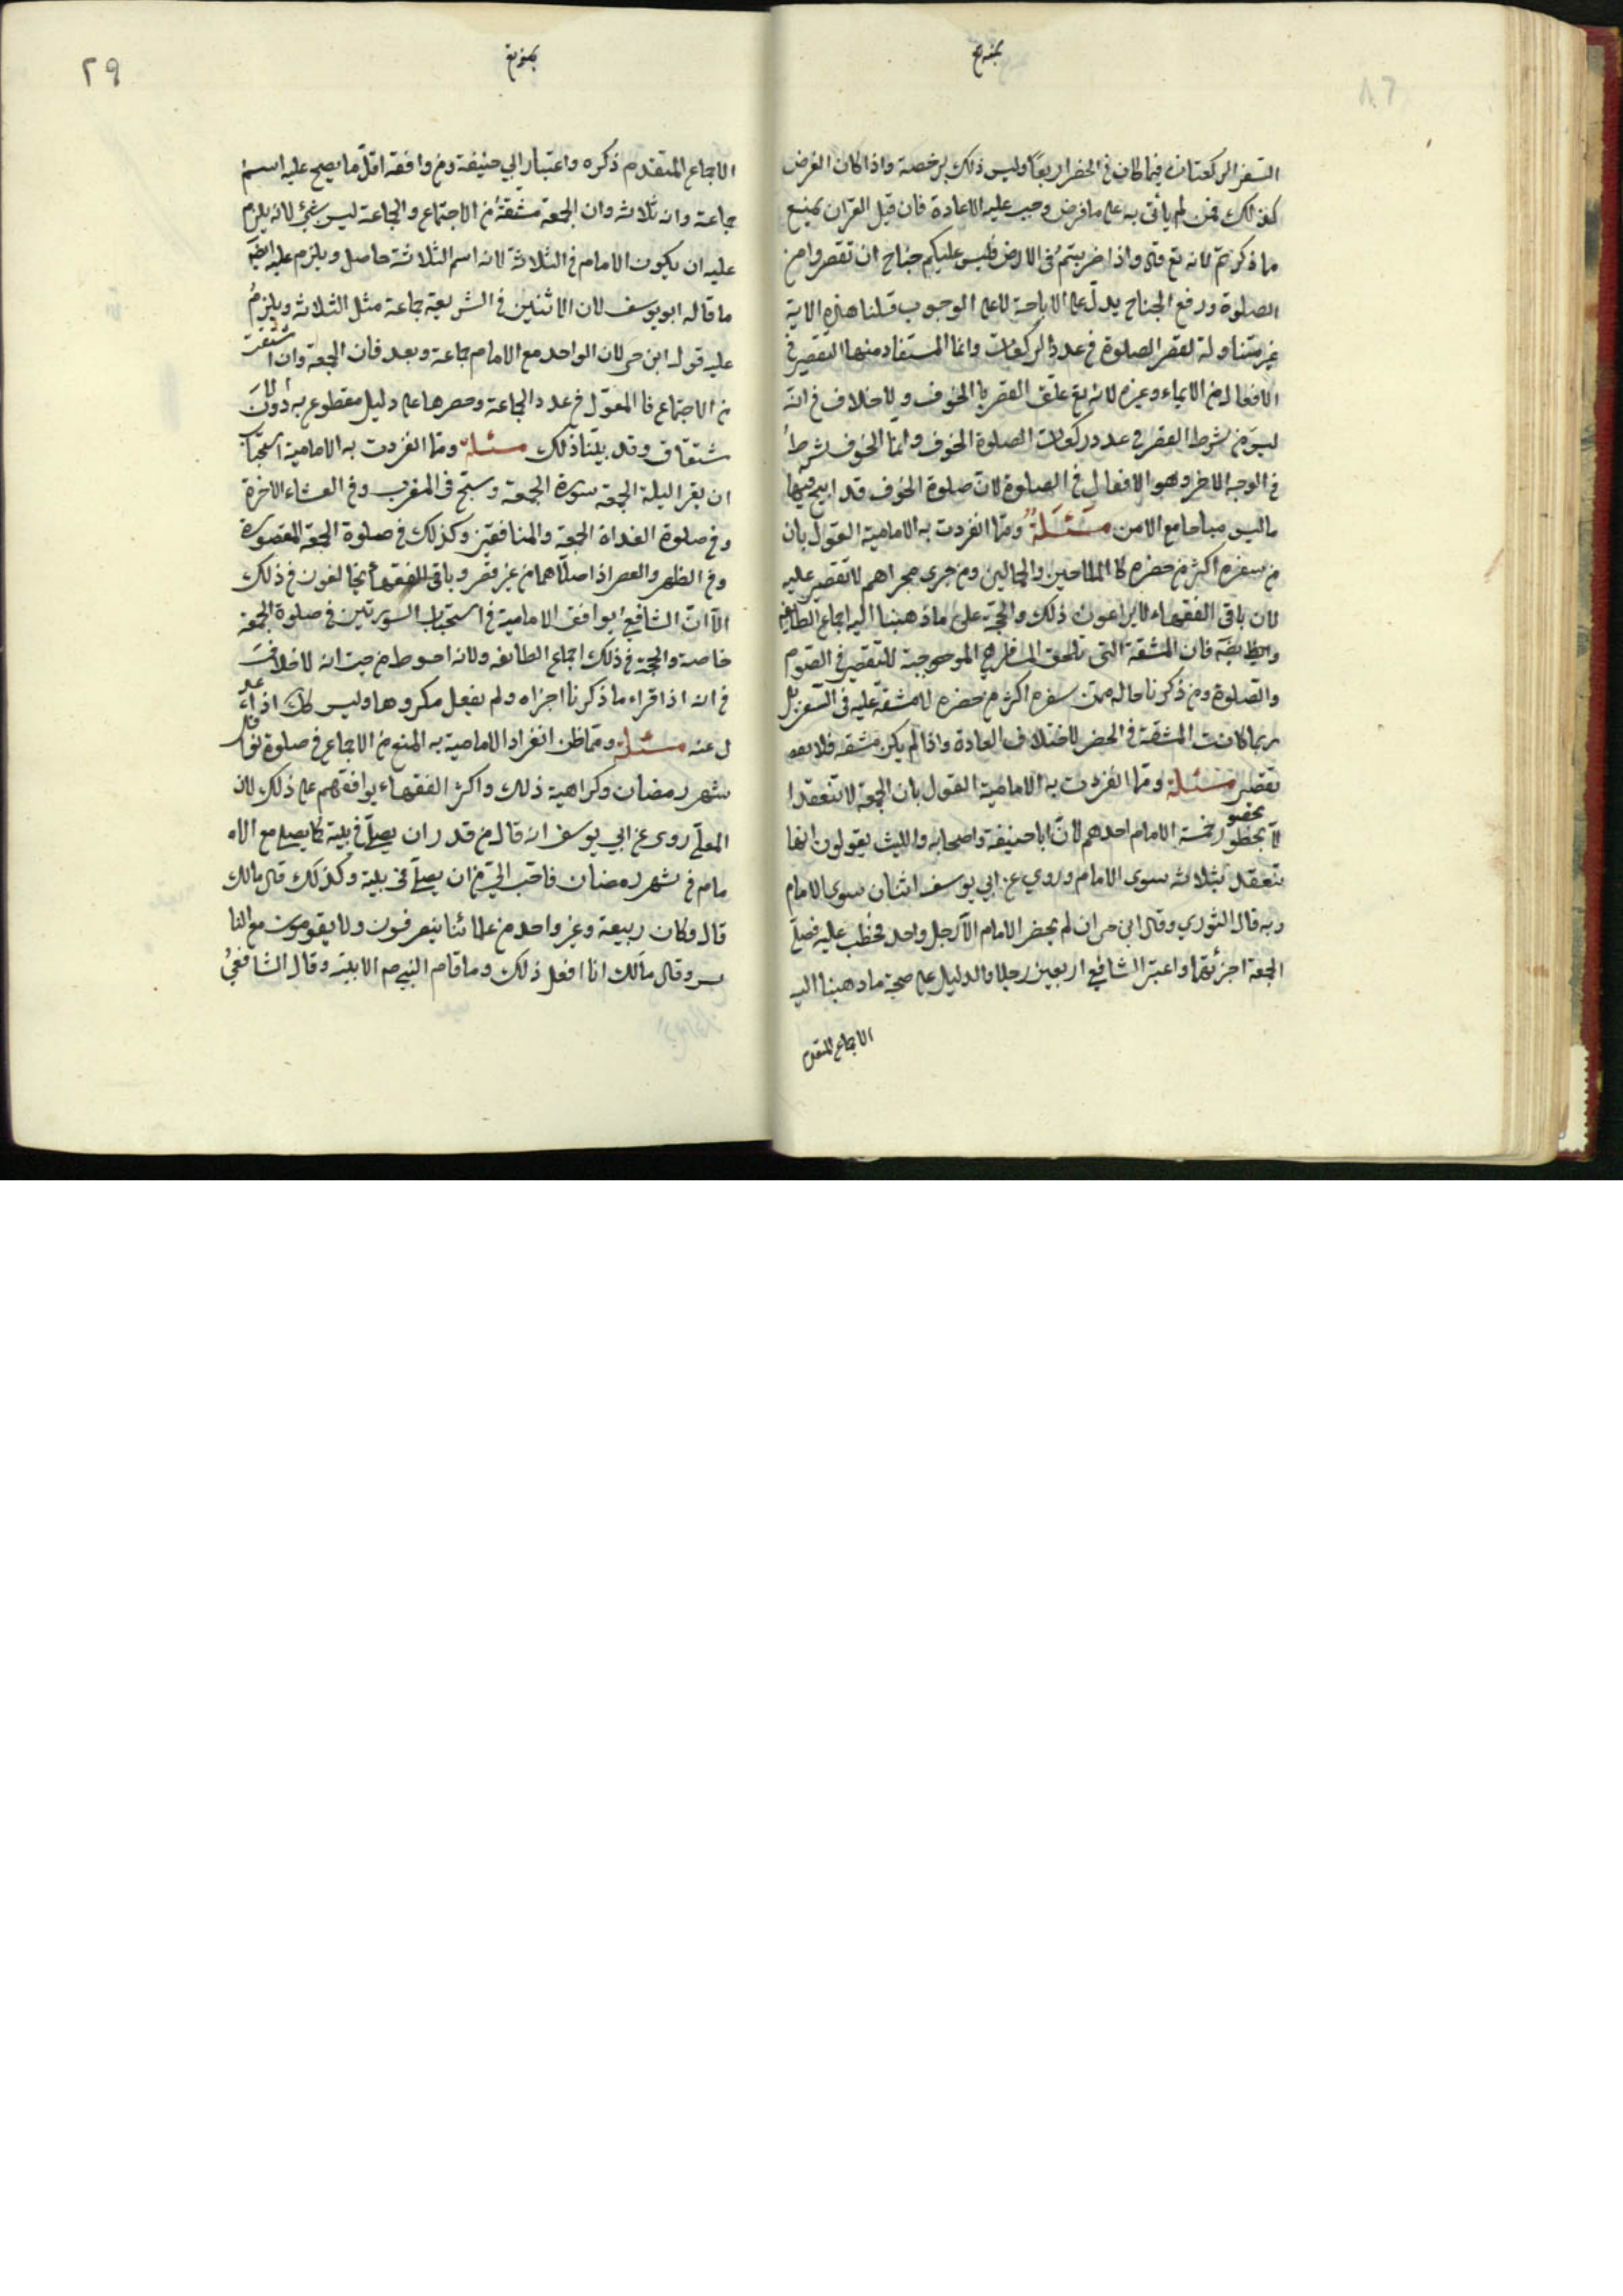 السفر الركعتان فيما كان في الحضر اربعًا وليس ذلك برخصة واذا كان الفرض
كذلك فمن لم يأتى به على ما فرض وجب عليه الاعادة فان قيل القران يمنع
ما ذكرتم لانه تع قال واذا ضربتم في الارض فليس عليكم جناح ان تقصروا من
الصلوة ورفع الجناح يدل على الاباحة لا على الوجوب قلنا هذه الاية
غير متناولة لقصر الصلوة في عدد الركعات وانما المستفاد منها التقصير في
الافعال من الايماء وغيره لانه تع علق القصر بالخوف ولا خلاف في انه
ليس من شرط القصر في عدد ركعات الصلوة الخوف وانما الخوف شرط
في الوجه الاخر وهو الافعال في الصلوة لان صلوة الخوف قد ابيح فيها
ما ليس مباحا مع الامن مسئلة ومما انفردت به الامامية القول بان
من سفره اكثر من حضره كالملاحين والجمالين ومن جرى مجراهم لا تقصير عليه
لان باقى الفقهاء لا يراعون ذلك والحجة على ما ذهبنا اليه اجماع الطايفة
وايضا فان المشقة التى تلحق المسافر هي الموجبة للتقصير في الصوم
والصلوة ومن ذكرنا حاله ممن سفره اكثر من حضره لا مشقة عليه في السفر بل
ربما كانت المشقة في الحضر لاختلاف العادة واذا لم يكن مشقه فلا
تقصير مسئلة ومما انفردت به الامامية القول بان الجمعة لا تنعقد ا
لا بحضور خمسة الامام احدهم لان ابا حنيفة واصحابه والليث يقولون انها
تنعقد بثلاثه سوى الامام وروي عن ابي يوسف اثنان سوى الامام
وبه قال الثوري وقال ابن حى ان لم يحضر الامام الا رجل واحد فخطب عليه فصلى
الجمعة اجزئتهما واعتبر الشافعي اربعين رجلا والدليل على صحة ما ذهبنا اليه
الاجماع المتقدم
٢٩
الاجماع المتقدم ذكره واعتبار ابي حنيفة ومن وافقه اقل ما يصح عليه اسم
جماعة وانه ثلاثه وان الجمعة مشقة من الاجتماع والجماعة ليس بشئ لانه يلزم
عليه ان يكون الامام في الثلاثة لانه اسم الثلاثة حاصل ويلزم عليه ايضا
ما قاله ابو يوسف لان الاثنين في الشريعة جماعة مثل الثلاثه ويلزم
عليه قول ابن حى لان الواحد مع الامام جماعة وبعد فان الجمعة وان اشتقت
من الاجتماع فالمعول في عدد الجماعة وحصرها على دليل مقطوع به دون الا
شتقاق وقد بينا ذلك مسئلة ومما انفردت به الامامية استحباب
ان يقرا ليلة الجمعه سورة الجمعة وسبح في المغرب وفي العشاء الاخرة
وفي صلوة الغداة الجمعة والمنافقين وكذلك في صلوة الجمعة المقصورة
وفي الظهر والعصر اذا صلاهما من غير قصر وباقى الفقهاء يخالفون في ذلك
الا ان الشافعي يوافق الامامية في استحباب السورتين في صلوة الجمعة
خاصة والحجة في ذلك اجماع الطائفه ولانه احوط من حيث انه لا خلاف
في انه اذا قراء ما ذكرنا اجزاه ولم يفعل مكروها وليس كذلك اذا عد
ل عنه مسئلة ومما ظن انفراد الامامية به المنع من الاجماع في صلوة نوافل
شهر رمضان وكراهية ذلك واكثر الفقهاء يوافقهم على ذلك لان
المعلى روى عن ابي يوسف انه قال من قدر ان يصلي في بيته كما يصلي مع الا
مام في شهر رمضان فاحب الي من ان يصلي في بيته وكذلك قال مالك
قال وكان ربيعة وغير واحد من علمائنا ينصرفون ولا يقومون مع النا
س وقال مالك انا افعل ذلك وما قام النبي ص الا بيته وقال الشافعي